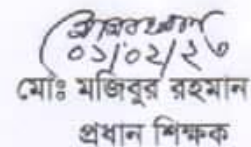 ০১/০২/২৩
মোঃ মজিবুর রহমান
প্রধান শিক্ষক